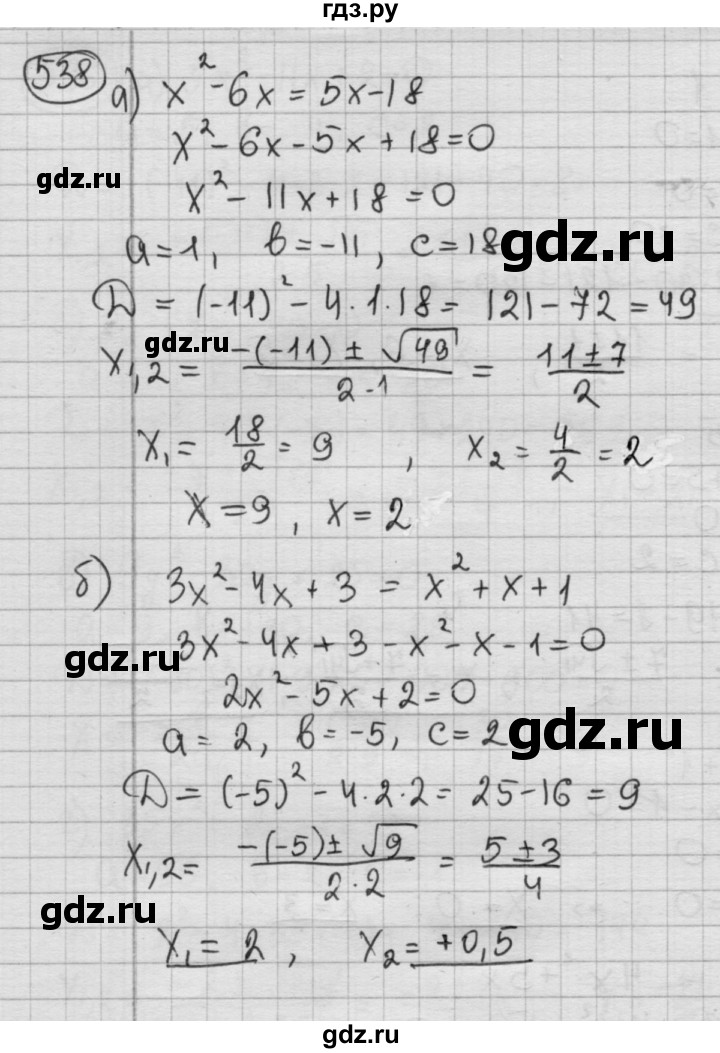 гдз.ру
538 а) x² - 6x = 5x - 18
x² - 6x - 5x + 18 = 0
gdz.ru
x² - 11x + 18 = 0
a = 1, b = -11, c = 18
gdz.ru
D = (-11)² - 4·1·18 = 121 - 72 = 49
gdz.ru
x₁,₂ = (-(-11) ± √49)/(2·1) = (11 ± 7)/2
x₁ = 18/2 = 9, x₂ = 4/2 = 2
x = 9, x = 2
б) 3x² - 4x + 3 = x² + x + 1
3x² - 4x + 3 - x² - x - 1 = 0
gdz.ru
2x² - 5x + 2 = 0
a = 2, b = -5, c = 2
gdz.ru
D = (-5)² - 4·2·2 = 25 - 16 = 9
x₁,₂ = (-(-5) ± √9)/(2·2) = (5 ± 3)/4
gdz.ru
x₁ = 2, x₂ = +0,5
gdz.ru